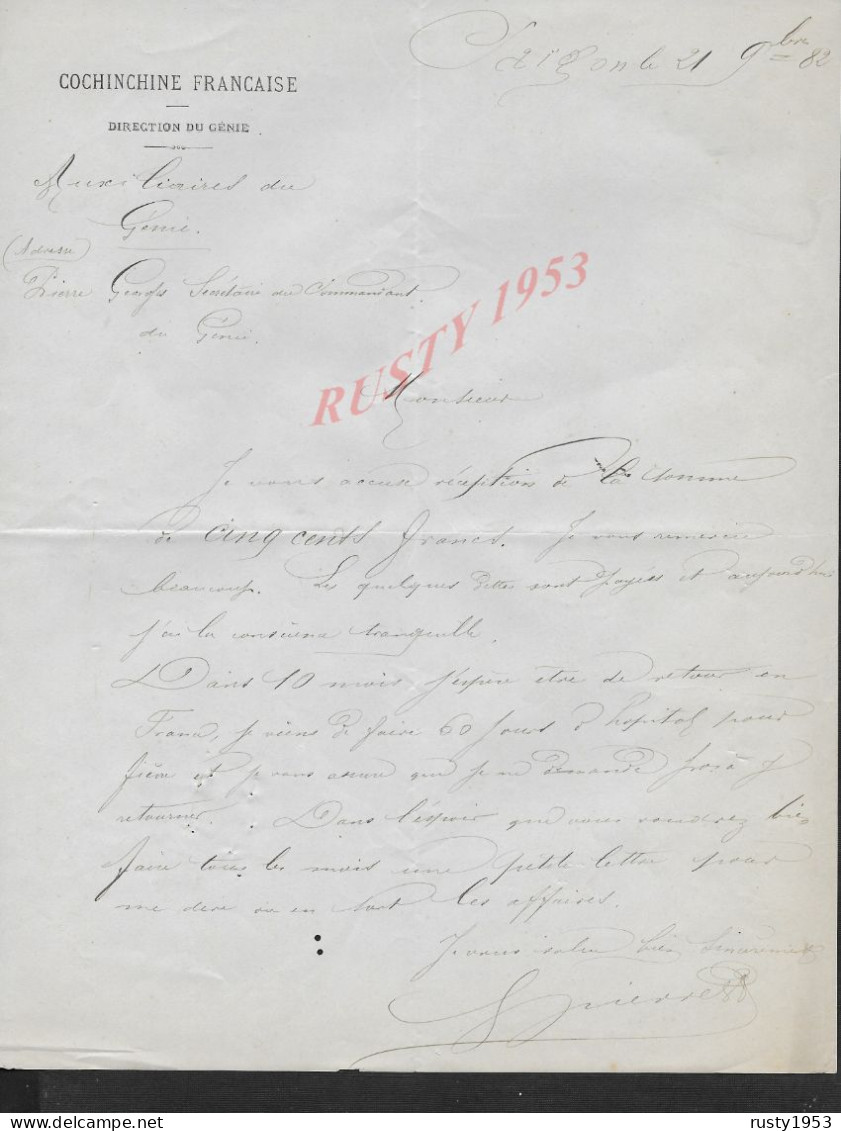 Saigon le 21 9bre 82
COCHINCHINE FRANCAISE
DIRECTION DU GÉNIE
Auxiliaires du
Génie.
(Adresse)
Pierre Georges Secrétaire du Commandant
du Génie.
RUSTY 1953
Monsieur
Je vous accuse réception de la somme
de cinq cents francs. Je vous remercie
beaucoup. Les quelques dettes sont payées et aujourd'hui
j'ai la conscience tranquille.
Dans 10 mois j'espère être de retour en
France, je viens de faire 60 jours d'hopital pour
fièvre et je vous assure que je ne demande pas à y
retourner. Dans l'espoir que vous voudrez bien
faire tous les mois une petite lettre pour
me dire où en sont les affaires.
Je vous salue bien sincèrement
GPierre
rusty1953